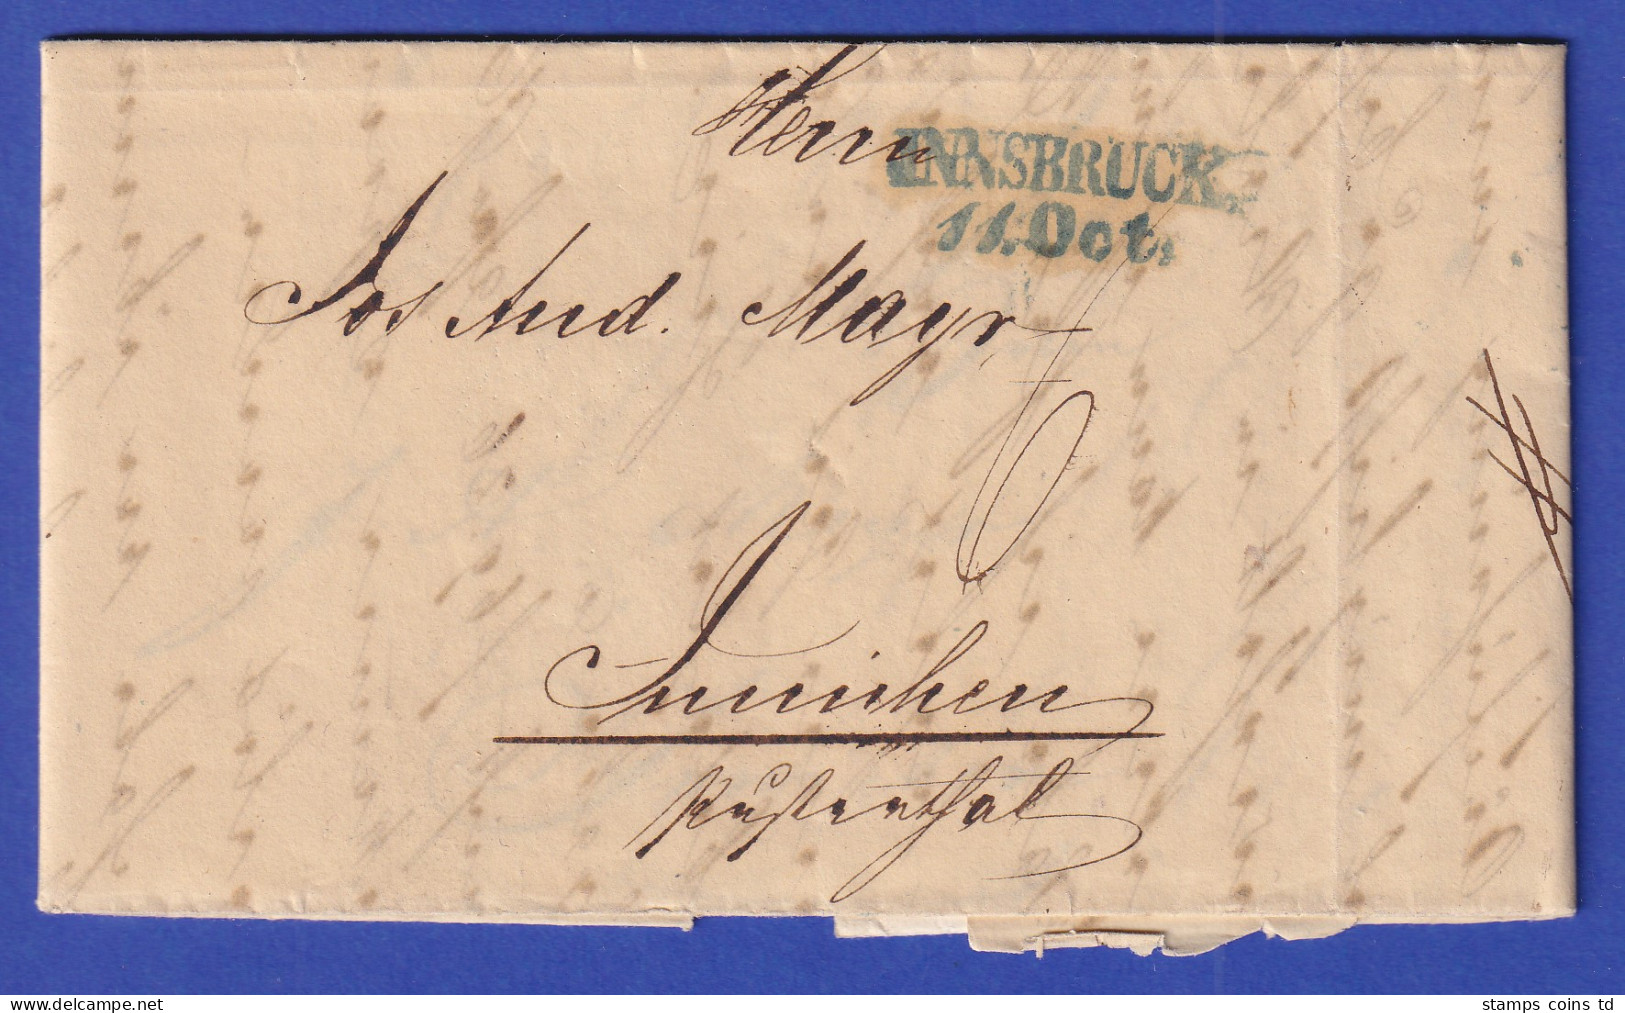 Herrn
INNSBRUCK.
11. Oct.
Jos And. Mayr
6
Innichen
Pusterthal
www.delcampe.net
stamps coins td